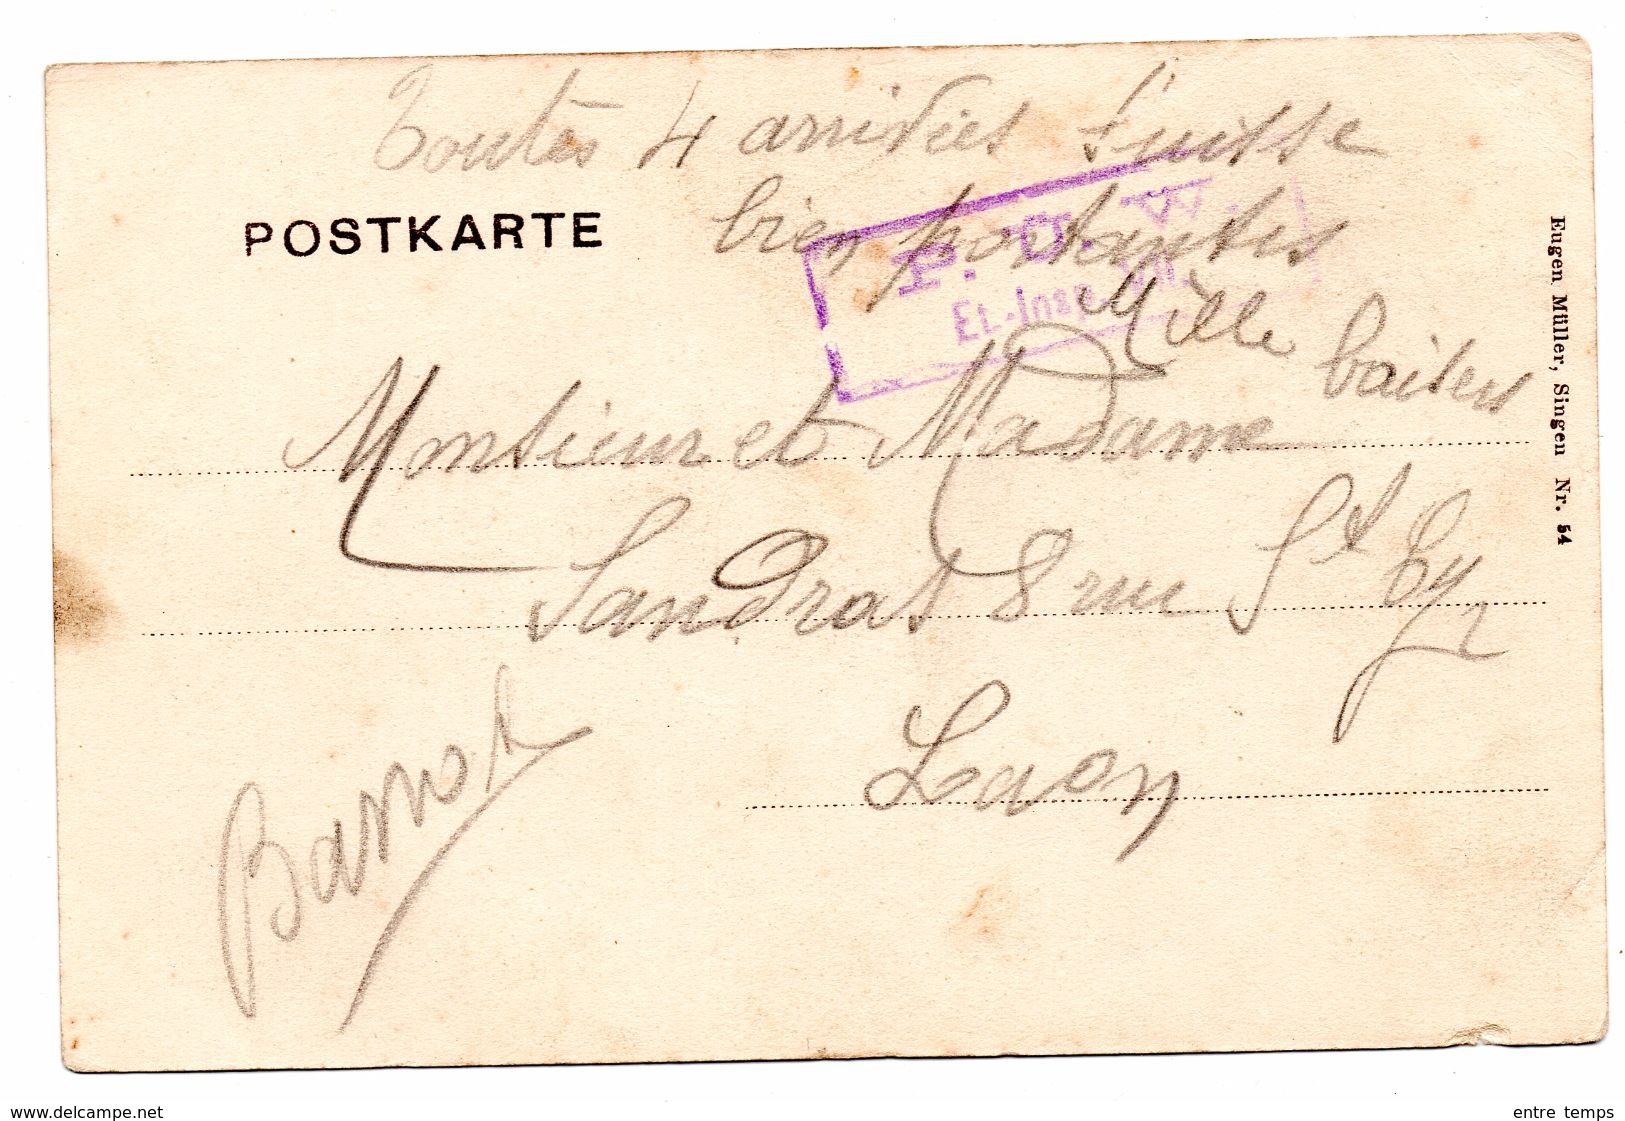 Toutes 4 arrivées Suisse
bien portantes
Mille baisers
POSTKARTE
P. G. A.
Et.-Insp. VII.
Monsieur et Madame
Sandrat 8 rue St
Laon
Eugen Müller, Singen Nr. 54
www.delcampe.net
entre temps